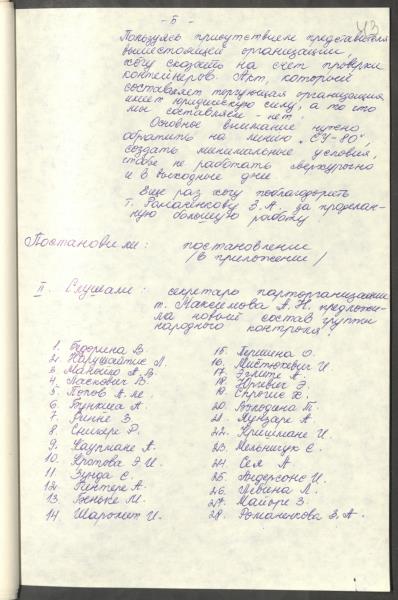 - 5 -
43
Пользуясь присутствием представителя
вышестоящей организации,
хочу сказать на счет проверки
контейнеров. Акт, который
составляет торгующая организация
имеет юридическую силу, а то что
мы составляем - нет.
Основное внимание нужно
обратить на линию „СУ-80",
создать минимальные условия,
чтобы не работать сверхурочно
и в выходные дни.
Еще раз хочу поблагодарить
т. Романенкову З.А. за проделан-
ную большую работу
Постановили: постановление
/в приложении/
II. Слушали: секретарь парторганизации
т. Максимова А.Н. предложи-
ла новый состав группы
народного контроля
1. Бедорина В.
2. Нарушайтис Л.
3. Манойло А.В.
4. Ласкович В.
5. Попов А.
6. Бункша А.
7. Ринне З.
8. Сникере Р.
9. Каупмане А.
10. Кротова Э.И.
11. Зунда С.
12. Рентере А.
13. Беньке М.
14. Шаромет И.
15. Першина О.
16. Мистюкевич И.
17. Эглите А.
18. Юркевич Э.
19. Спрогис Х.
20. Выходена Т.
21. Лундаре А.
22. Кришмане И.
23. Мельницук Е.
24. Сея А
25. Андерсонс И.
26. Левина Л.
27. Майоре З.
28. Романенкова З.А.